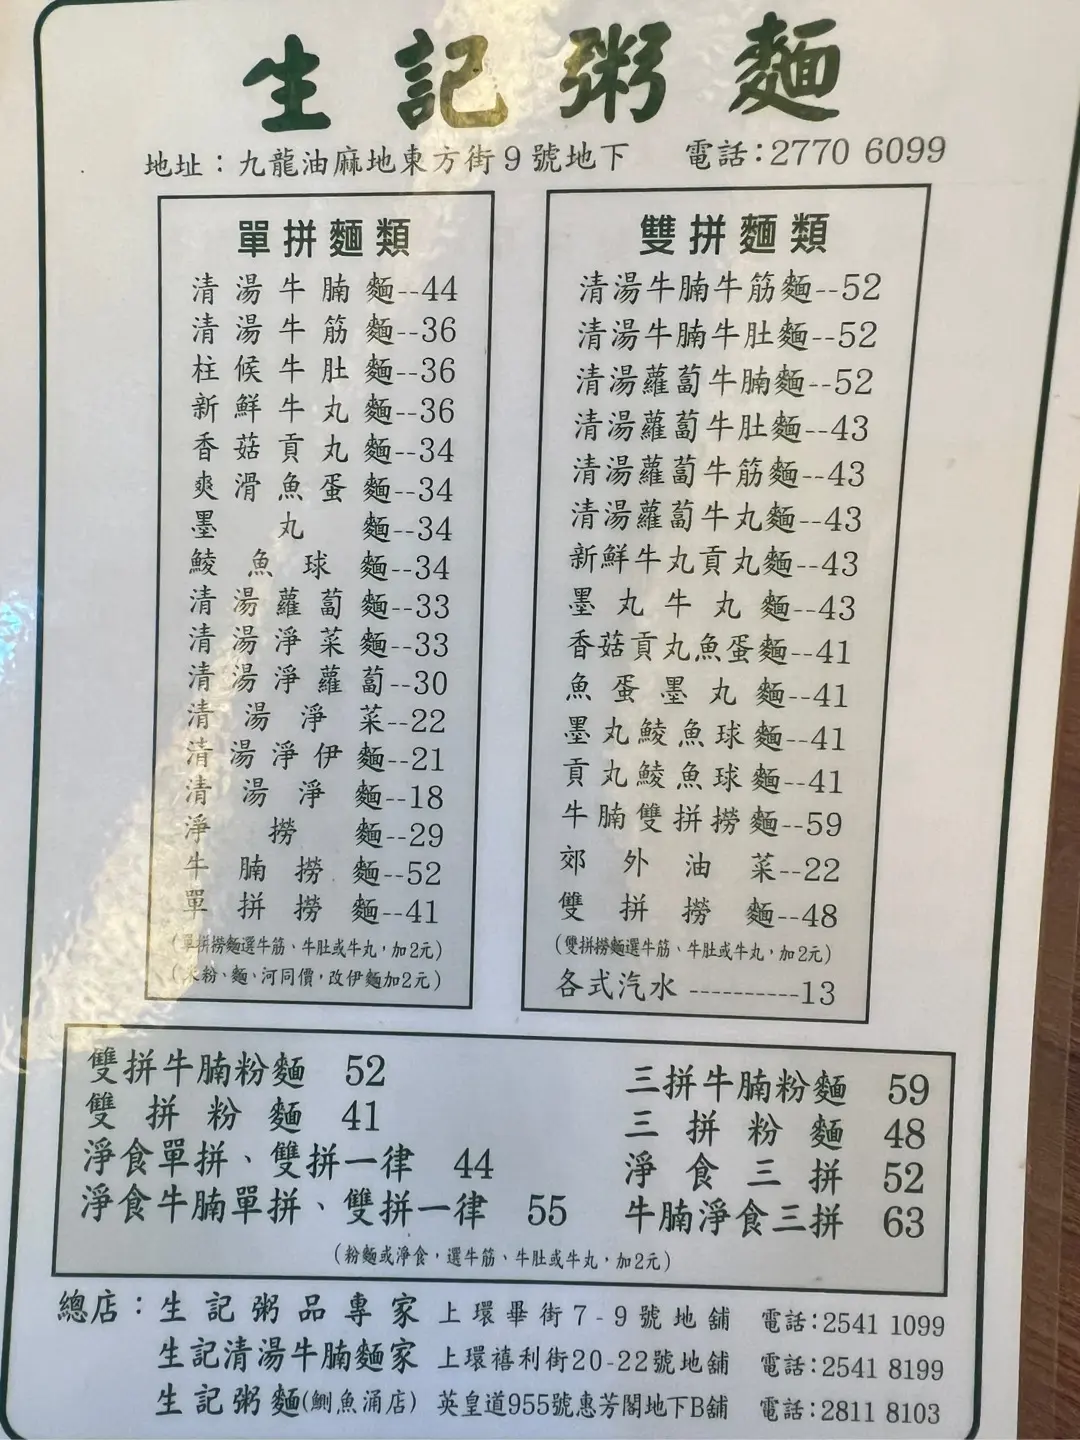 生記粥麵
地址：九龍油麻地東方街9號地下 電話：2770 6099
單拼麵類
清湯牛腩麵--44
清湯牛筋麵--36
柱候牛肚麵--36
新鮮牛丸麵--36
香菇貢丸麵--34
爽滑魚蛋麵--34
墨丸麵--34
鯪魚球麵--34
清湯蘿蔔麵--33
清湯淨菜麵--33
清湯淨蘿蔔--30
清湯淨菜--22
清湯淨伊麵--21
清湯淨麵--18
淨撈麵--29
牛腩撈麵--52
單拼撈麵--41
(單拼撈麵選牛筋、牛肚或牛丸，加2元)
粉、麵、河同價，改伊麵加2元)
雙拼麵類
清湯牛腩牛筋麵--52
清湯牛腩牛肚麵--52
清湯蘿蔔牛腩麵--52
清湯蘿蔔牛肚麵--43
清湯蘿蔔牛筋麵--43
清湯蘿蔔牛丸麵--43
新鮮牛丸貢丸麵--43
墨丸牛丸麵--43
香菇貢丸魚蛋麵--41
魚蛋墨丸麵--41
墨丸鯪魚球麵--41
貢丸鯪魚球麵--41
牛腩雙拼撈麵--59
郊外油菜---22
雙拼撈麵--48
(雙拼撈麵選牛筋、牛肚或牛丸，加2元)
各式汽水 ----------13
雙拼牛腩粉麵 52
雙拼粉麵 41
淨食單拼、雙拼一律 44
淨食牛腩單拼、雙拼一律 55
三拼牛腩粉麵 59
三拼粉麵 48
淨食三拼 52
牛腩淨食三拼 63
(粉麵或淨食，選牛筋、牛肚或牛丸，加2元)
總店：生記粥品專家 上環畢街7-9號地舖 電話：2541 1099
生記清湯牛腩麵家 上環禧利街20-22號地舖 電話：2541 8199
生記粥麵(鰂魚涌店) 英皇道955號惠芳閣地下B舖 電話：2811 8103